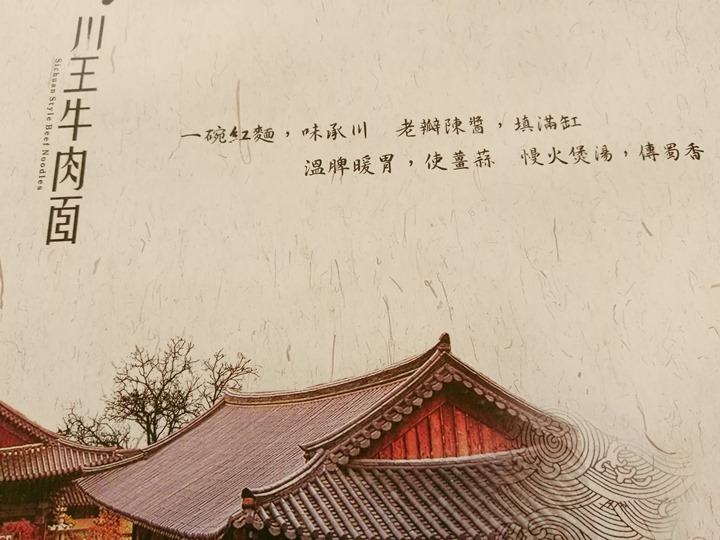 川王牛肉面
Sichuan Style Beef Noodles
一碗紅麵，味承川　老瓣陳醬，填滿缸
溫脾暖胃，使薑蒜　慢火煲湯，傳蜀香